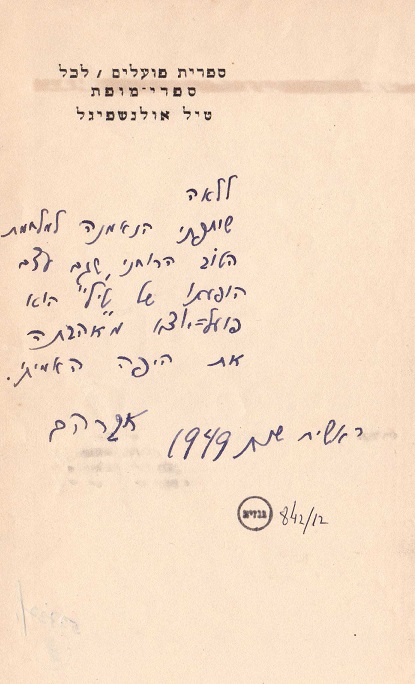 ספרית פועלים / לכל
ספרי־מופת
טיל אולנשפיגל
ללאה
שותפתי הנאמנה למלחמת
הטוב הרוחני, שגם עצם
הופעתו של "טיל" הוא
פועל־יוצא מאהבתה
את היפה האמיתי.
אברהם
ראשית שנת 1949
842/12